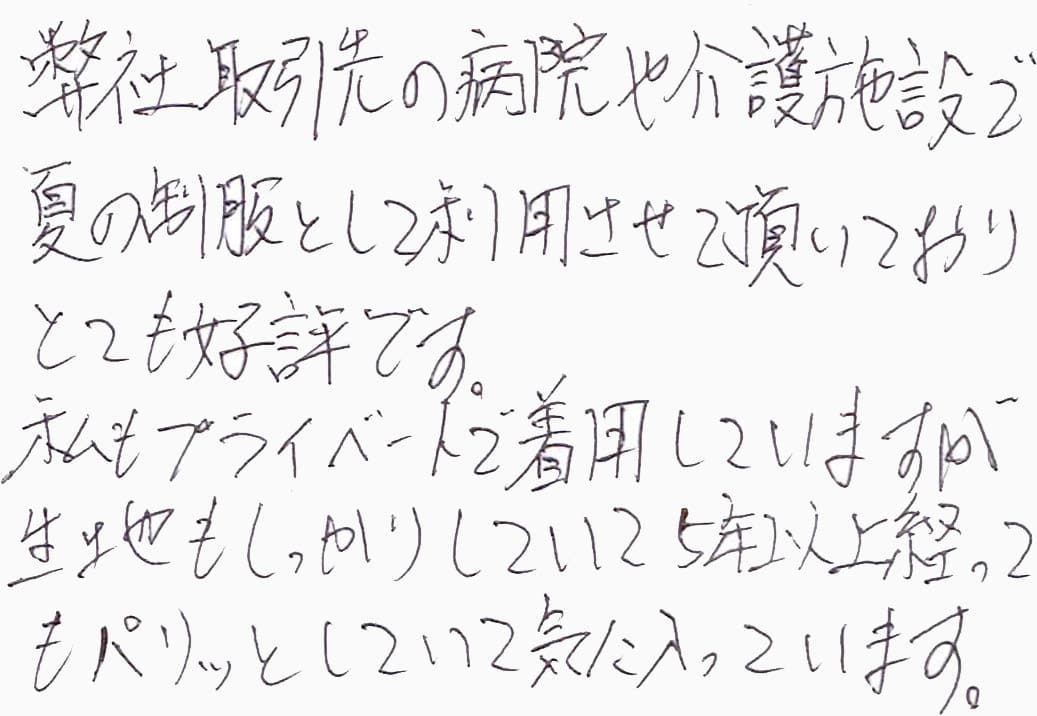 弊社取引先の病院や介護施設で
夏の制服として利用させて頂いており
とても好評です。
私もプライベートで着用していますが
生地もしっかりしていて5年以上経って
もパリッとしていて気に入っています。